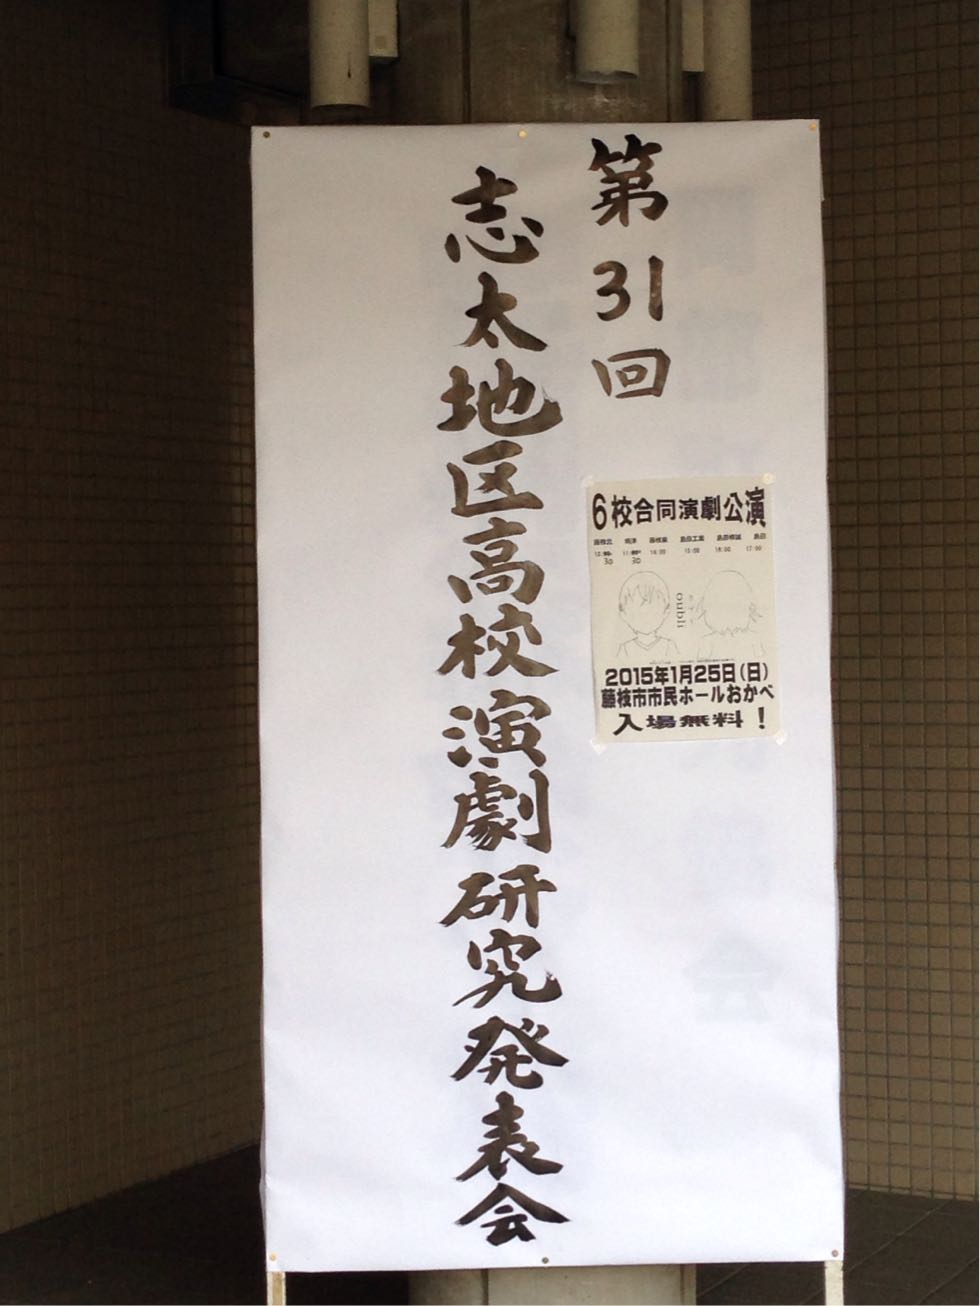 第31回
志太地区高校演劇研究発表会
6校合同演劇公演
藤枝北 焼津 藤枝東 島田工業 島田樟誠 島田
30 30
14:00 15:00 16:00 17:00
oubli
2015年1月25日(日)
藤枝市市民ホールおかべ
入場無料!